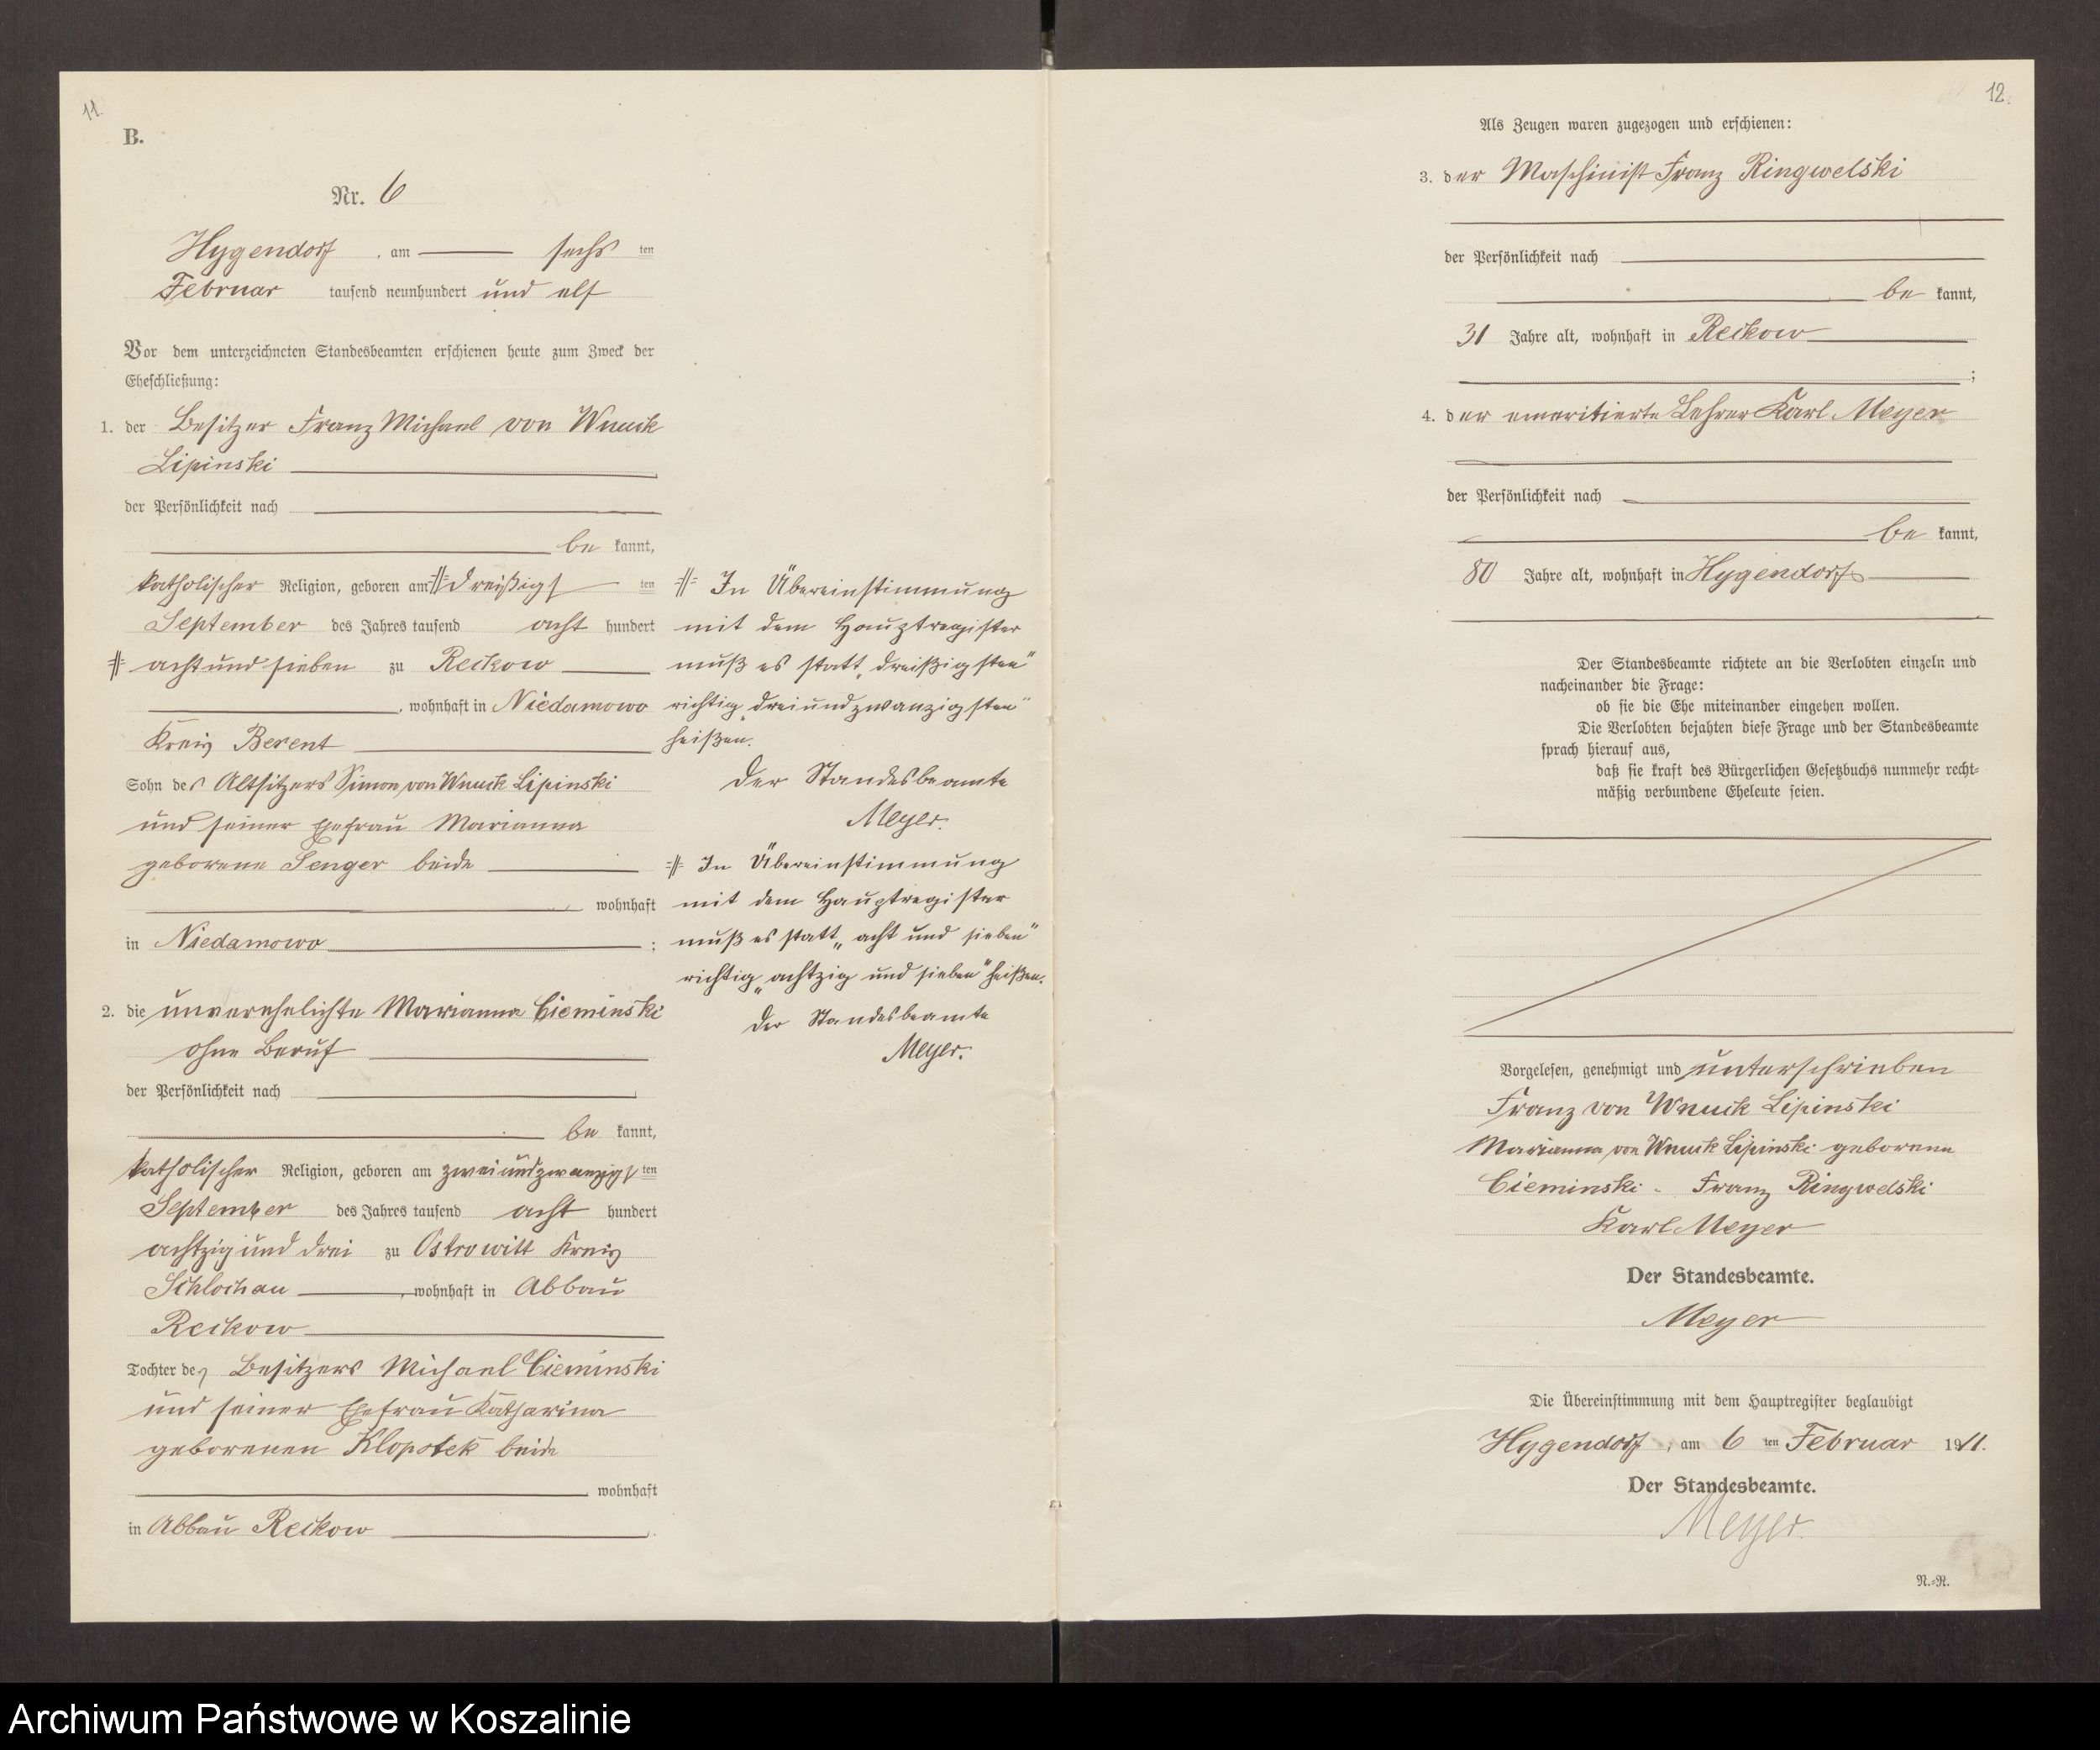 11.
B.
Nr. 6
Hygendorf, am sechsten
Februar tausend neunhundert und elf
Vor dem unterzeichneten Standesbeamten erschienen heute zum Zweck der
Eheschließung:
1. der Besitzer Franz Michael von Wnuck
Lipinski
der Persönlichkeit nach
be kannt,
katholischer Religion, geboren am dreißigsten
September des Jahres tausend acht hundert
acht und sieben zu Reckow
, wohnhaft in Niedamowo
Kreis Berent
Sohn des Altsitzers Simon von Wnuck Lipinski
und seiner Ehefrau Marianna
geborene Senger beide
wohnhaft
in Niedamowo ;
2. die unverehelichte Marianna Cieminski
ohne Beruf
der Persönlichkeit nach
be kannt,
katholischer Religion, geboren am zweiundzwanzigsten
September des Jahres tausend acht hundert
achtzig und drei zu Ostrowitt Kreis
Schlochau, wohnhaft in Abbau
Reckow
Tochter des Besitzers Michael Cieminski
und seiner Ehefrau Katharina
geborenen Klopotek beide
wohnhaft
in Abbau Reckow.
In Übereinstimmung
mit dem Hauptregister
muß es statt „dreißigsten"
richtig „dreiundzwanzigsten"
heißen.
Der Standesbeamte
Meyer.
In Übereinstimmung
mit dem Hauptregister
muß es statt „acht und sieben"
richtig „achtzig und sieben" heißen.
Der Standesbeamte
Meyer.
12.
Als Zeugen waren zugezogen und erschienen:
3. der Maschinist Franz Ringwelski
der Persönlichkeit nach
be kannt,
31 Jahre alt, wohnhaft in Reckow
;
4. der emeritierte Lehrer Karl Meyer
der Persönlichkeit nach
be kannt,
80 Jahre alt, wohnhaft in Hygendorf
Der Standesbeamte richtete an die Verlobten einzeln und
nacheinander die Frage:
ob sie die Ehe miteinander eingehen wollen.
Die Verlobten bejahten diese Frage und der Standesbeamte
sprach hierauf aus,
daß sie kraft des Bürgerlichen Gesetzbuchs nunmehr recht-
mäßig verbundene Eheleute seien.
Vorgelesen, genehmigt und unterschrieben
Franz von Wnuck Lipinski
Marianna von Wnuck Lipinski geborene
Cieminski - Franz Ringwelski
Karl Meyer
Der Standesbeamte.
Meyer
Die Übereinstimmung mit dem Hauptregister beglaubigt
Hygendorf, am 6 ten Februar 1911.
Der Standesbeamte.
Meyer.
N.-R.
Archiwum Państwowe w Koszalinie